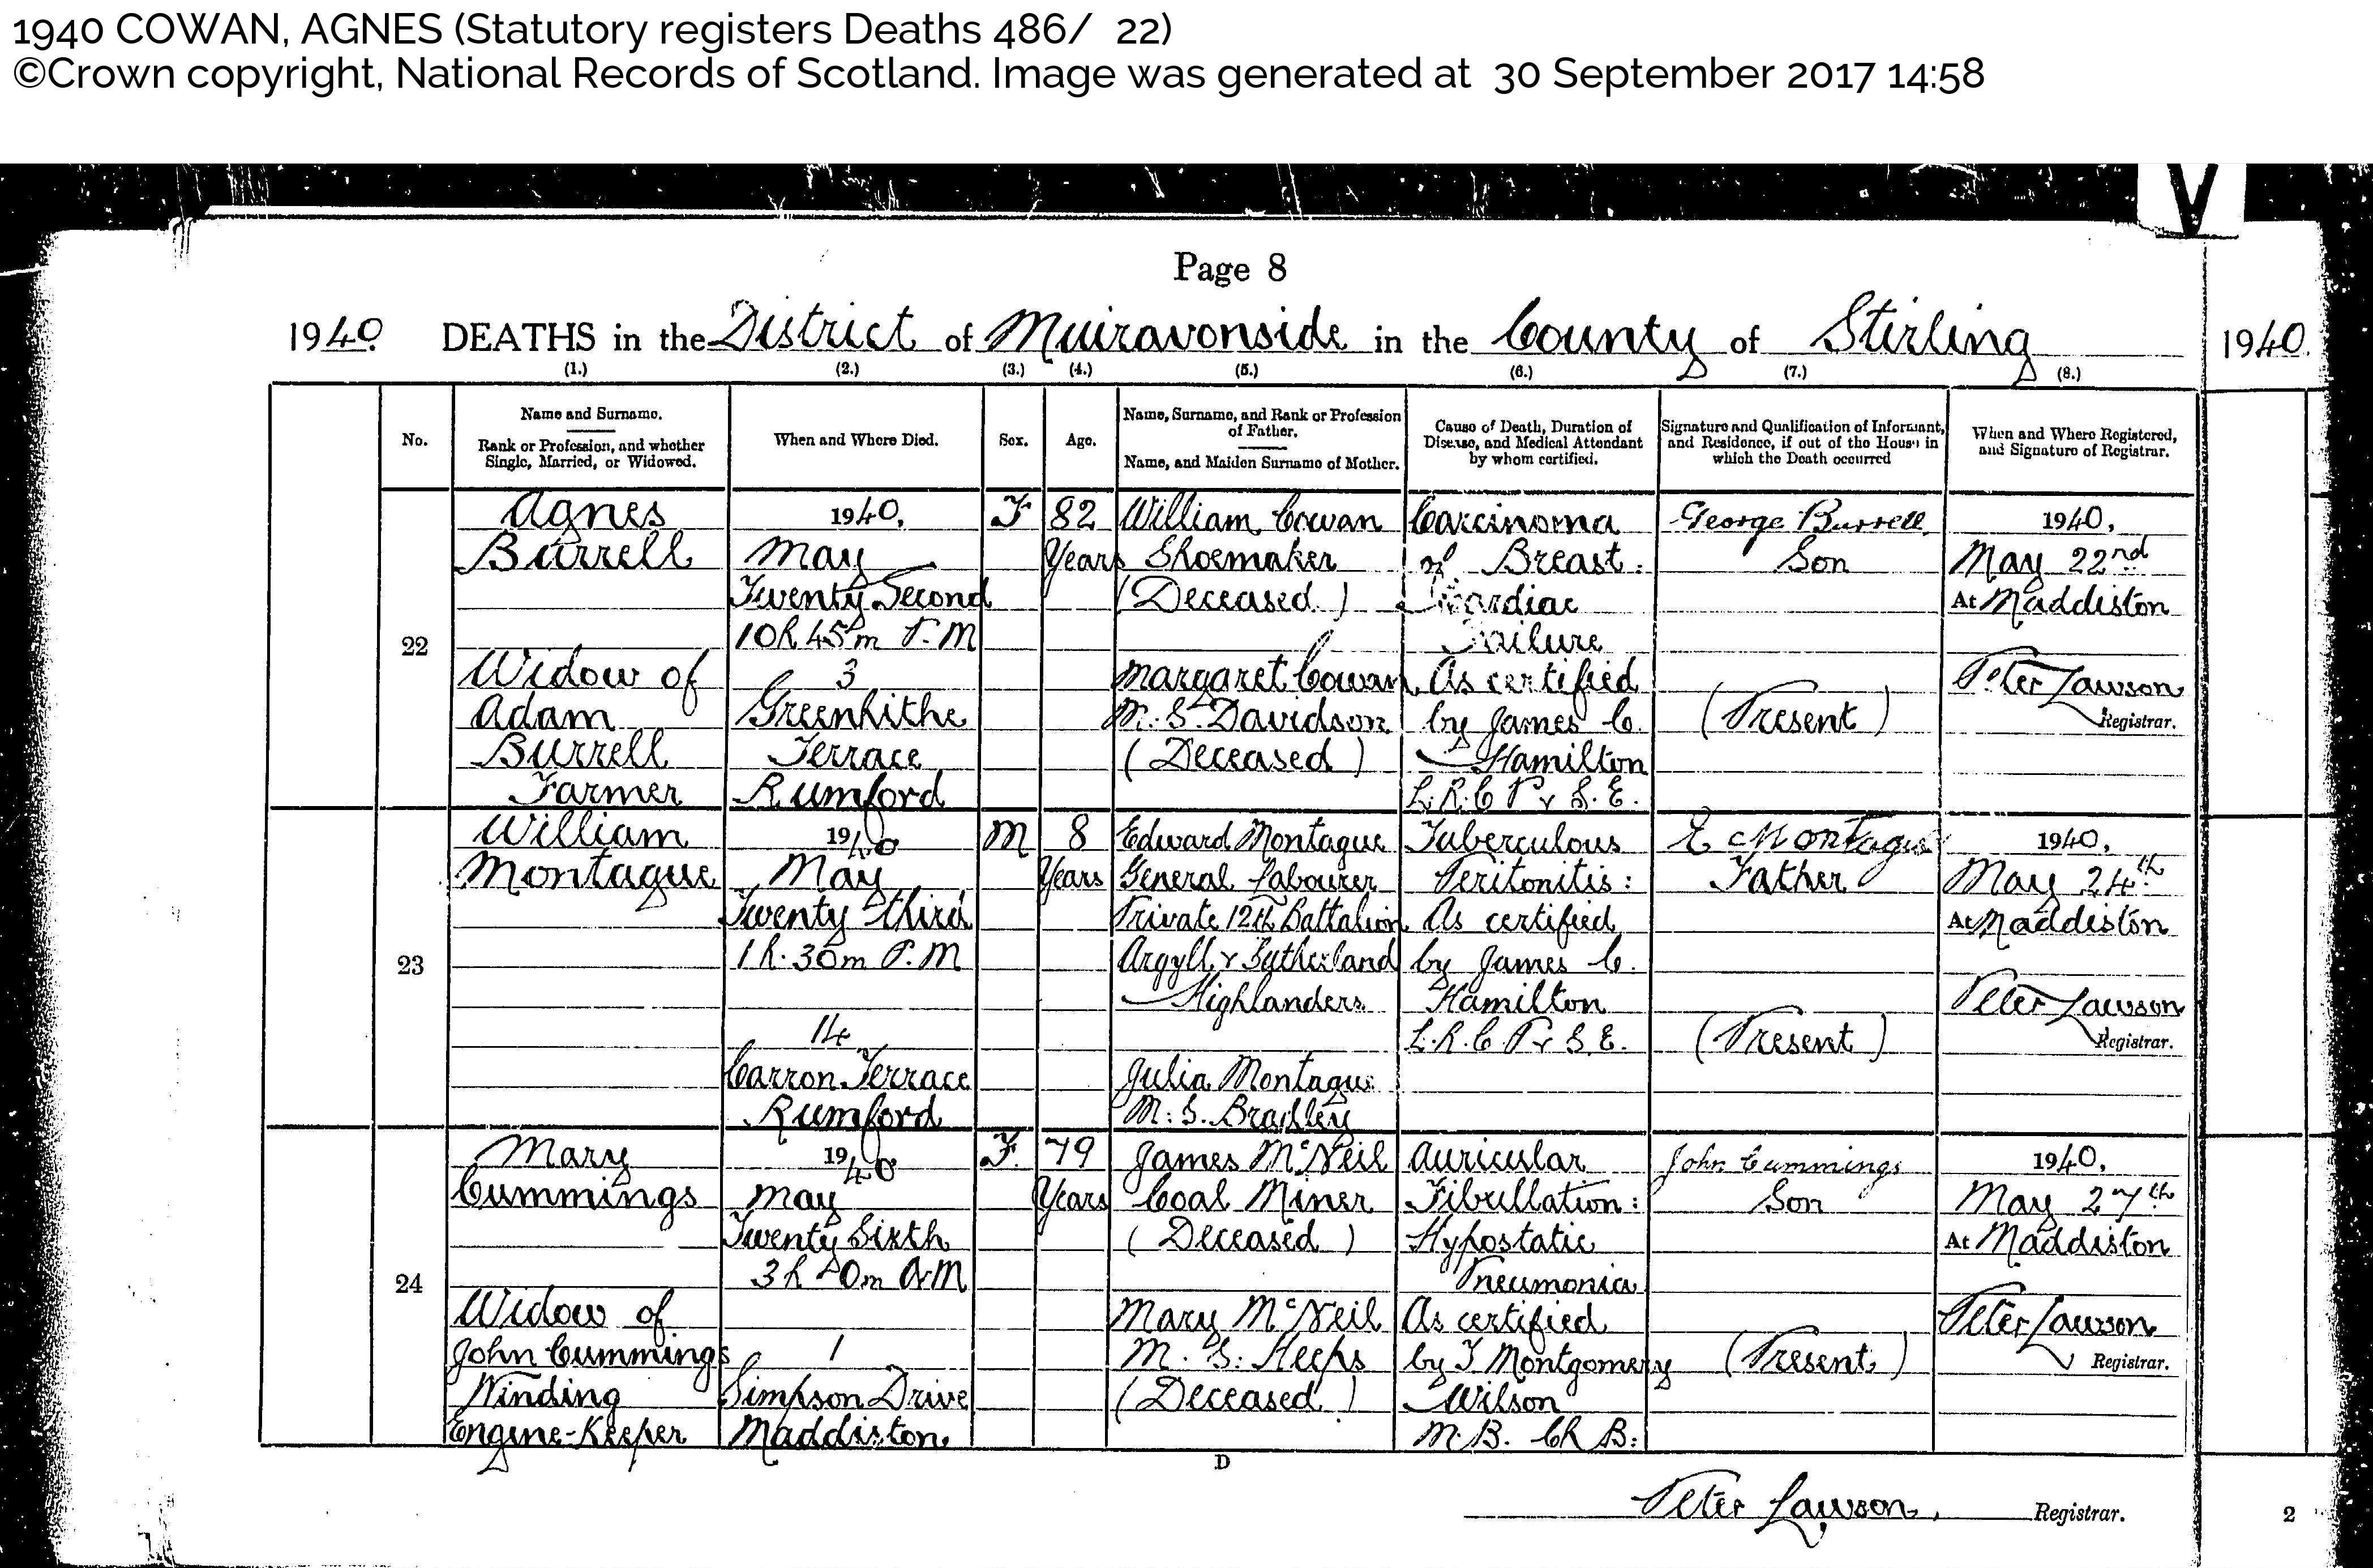 1940 COWAN, AGNES (Statutory registers Deaths 486/ 22)
©Crown copyright, National Records of Scotland. Image was generated at 30 September 2017 14:58
V
Page 8
1940. DEATHS in the District of Muiravonside in the County of Stirling
1940.
(1.) (2.) (3.) (4.) (5.) (6.) (7.) (8.)
No.
Name and Surname.
Rank or Profession, and whether
Single, Married, or Widowed.
When and Where Died.
Sex.
Age.
Name, Surname, and Rank or Profession
of Father.
Name, and Maiden Surname of Mother.
Cause of Death, Duration of
Disease, and Medical Attendant
by whom certified.
Signature and Qualification of Informant,
and Residence, if out of the House in
which the Death occurred
When and Where Registered,
and Signature of Registrar.
22
Agnes
Burrell
Widow of
Adam
Burrell
Farmer
1940,
May
Twenty Second
10h 45m P.M
3
Greenhithe
Terrace
Rumford
F
82
Years
William Cowan
Shoemaker
(Deceased)
Margaret Cowan,
M.S. Davidson
(Deceased)
Carcinoma
of Breast:
Cardiac
Failure
As certified
by James C.
Hamilton
L.R.C P & S.E.
George Burrell
Son
(Present)
1940,
May 22nd
At Maddiston
Peter Lawson
Registrar.
23
William
Montague
1940
May
Twenty third
1h. 30m P.M
14
Carron Terrace
Rumford
M
8
Years
Edward Montague
General Labourer
Private 12th Battalion
Argyll & Sutherland
Highlanders
Julia Montague
M.S. Bradley
Tuberculous
Peritonitis:
As certified
by James C.
Hamilton
L.R.C P & S.E.
E Montague
Father
(Present)
1940,
May 24th
At Maddiston
Peter Lawson
Registrar.
24
Mary
Cummings
Widow of
John Cummings
Winding
Engine-Keeper
1940
May
Twenty Sixth
3h 0m A.M
1
Simpson Drive
Maddiston
F.
79
Years
James McNeil
Coal Miner
(Deceased)
Mary McNeil
M.S. Heeps
(Deceased)
Auricular
Fibullation:
Hypostatic
Pneumonia
As certified
by T Montgomery
Wilson
M.B. Ch B:
John Cummings
Son
(Present)
1940,
May 27th
At Maddiston
Peter Lawson
Registrar.
D
Peter Lawson, Registrar.
2